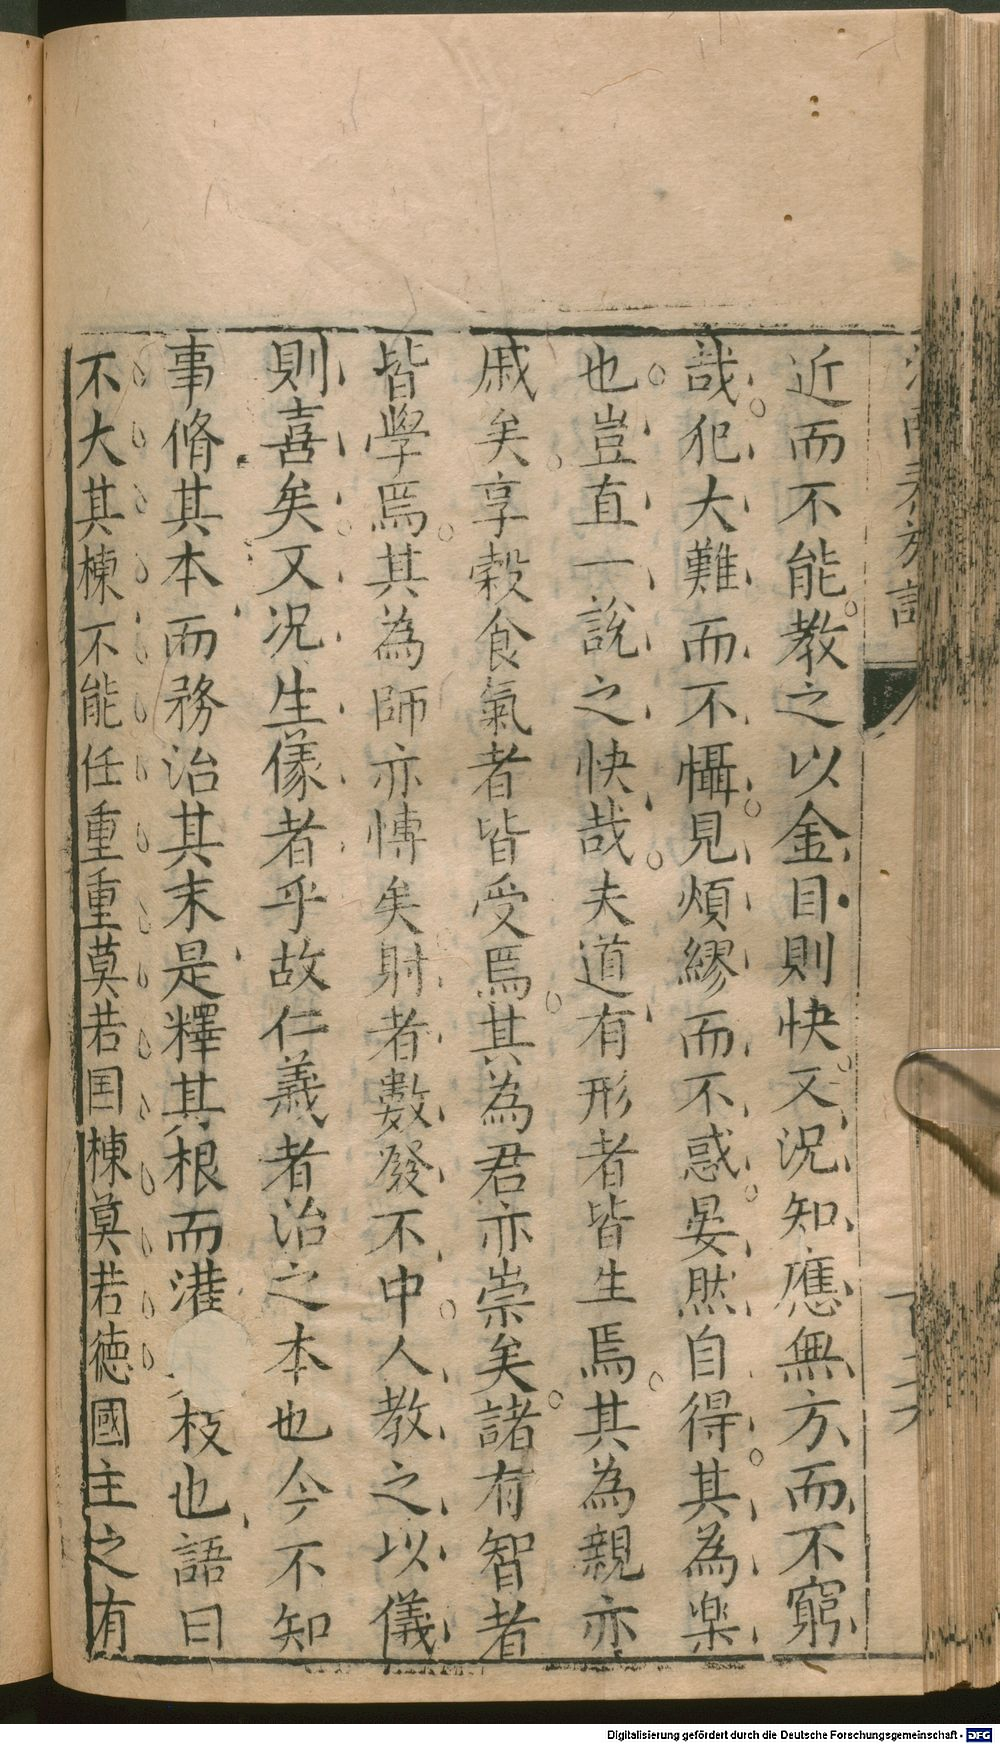 近而不能教之以金目則快又況知應無方而不窮
哉犯大難而不懾見煩繆而不惑晏然自得其為楽
也豈直一說之快哉夫道有形者皆生焉其為親亦
戚矣享穀食氣者皆受焉其為君亦崇矣諸有智者
皆學焉其為師亦愽矣射者數發不中人教之以儀
則喜矣又况生儀者乎故仁義者治之本也今不知
事脩其本而務治其末是釋其根而灌枝也語曰
不大其棟不能任重重莫若国棟莫若德國主之有
Digitalisierung gefördert durch die Deutsche Forschungsgemeinschaft - DFG